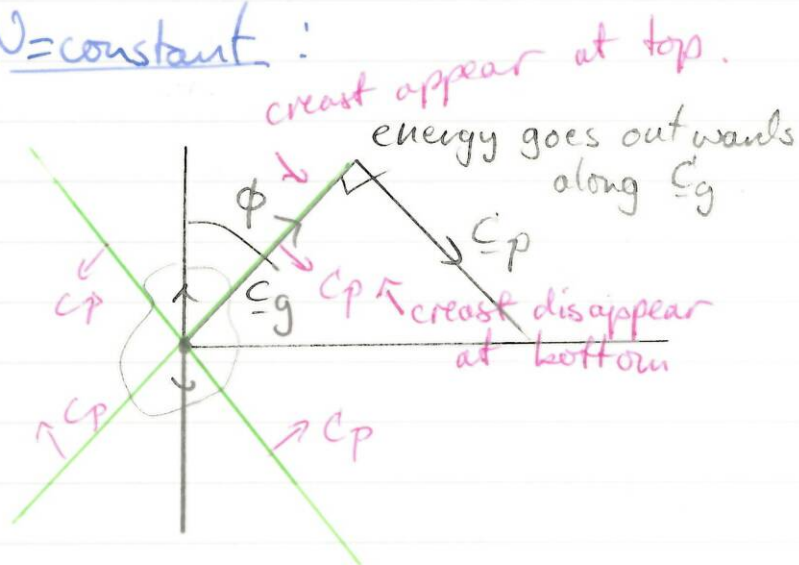 N=constant :
creast appear at top.
energy goes outwards
along c_g
ϕ
c_p
c_g
cp
cp
creast disappear
at bottom
cp
cp